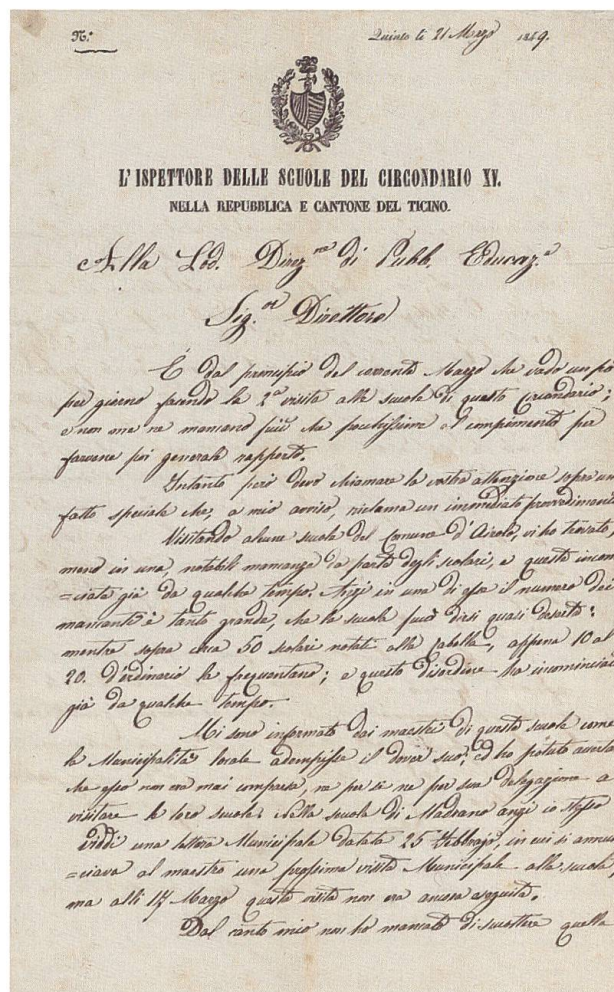 N.º
Quinto li 21 Marzo 1849.
L'ISPETTORE DELLE SCUOLE DEL CIRCONDARIO XV.
NELLA REPUBBLICA E CANTONE DEL TICINO.
Alla Lod. Direz.ne di Pubb. Educaz.e
Sig.or Direttore
È dal principio del corrente Marzo che vado un po'
per giorno facendo la 2.a visita alle scuole di questo Circondario;
e non me ne mancano più che pochissime al compimento per
farvene poi generale rapporto.
Intanto però devo chiamare la vostra attenzione sopra un
fatto speciale che, a mio avviso, reclama un immediato provvedimento
Visitando alcune scuole del Comune d'Airolo, vi ho trovato,
meno in una, notabili mancanze da parte degli scolari, e queste incom
=ciate già da qualche tempo. Anzi in una di esse il numero dei
mancanti è tanto grande, che la scuola può dirsi quasi deserta:
mentre sopra circa 50 scolari notati alla tabella, appena 10 al
20. d'ordinario la frequentano; e questo disordine ha incominciat
già da qualche tempo.
Mi sono informato dai maestri di queste scuole come
la Municipalità locale adempisse il dover suo; ed ho potuto
che essa non era mai comparsa, ne per sè ne per sua delegazione a
visitare le loro scuole. Nella scuola di Madrano anzi io stesso
viddi una lettera Municipale datata 25 Febbrajo, in cui si annun
=ciava al maestro una prossima visita Municipale alla scuola,
ma alli 17 Marzo questa visita non era ancora eseguita.
Dal canto mio non ho mancato di quella